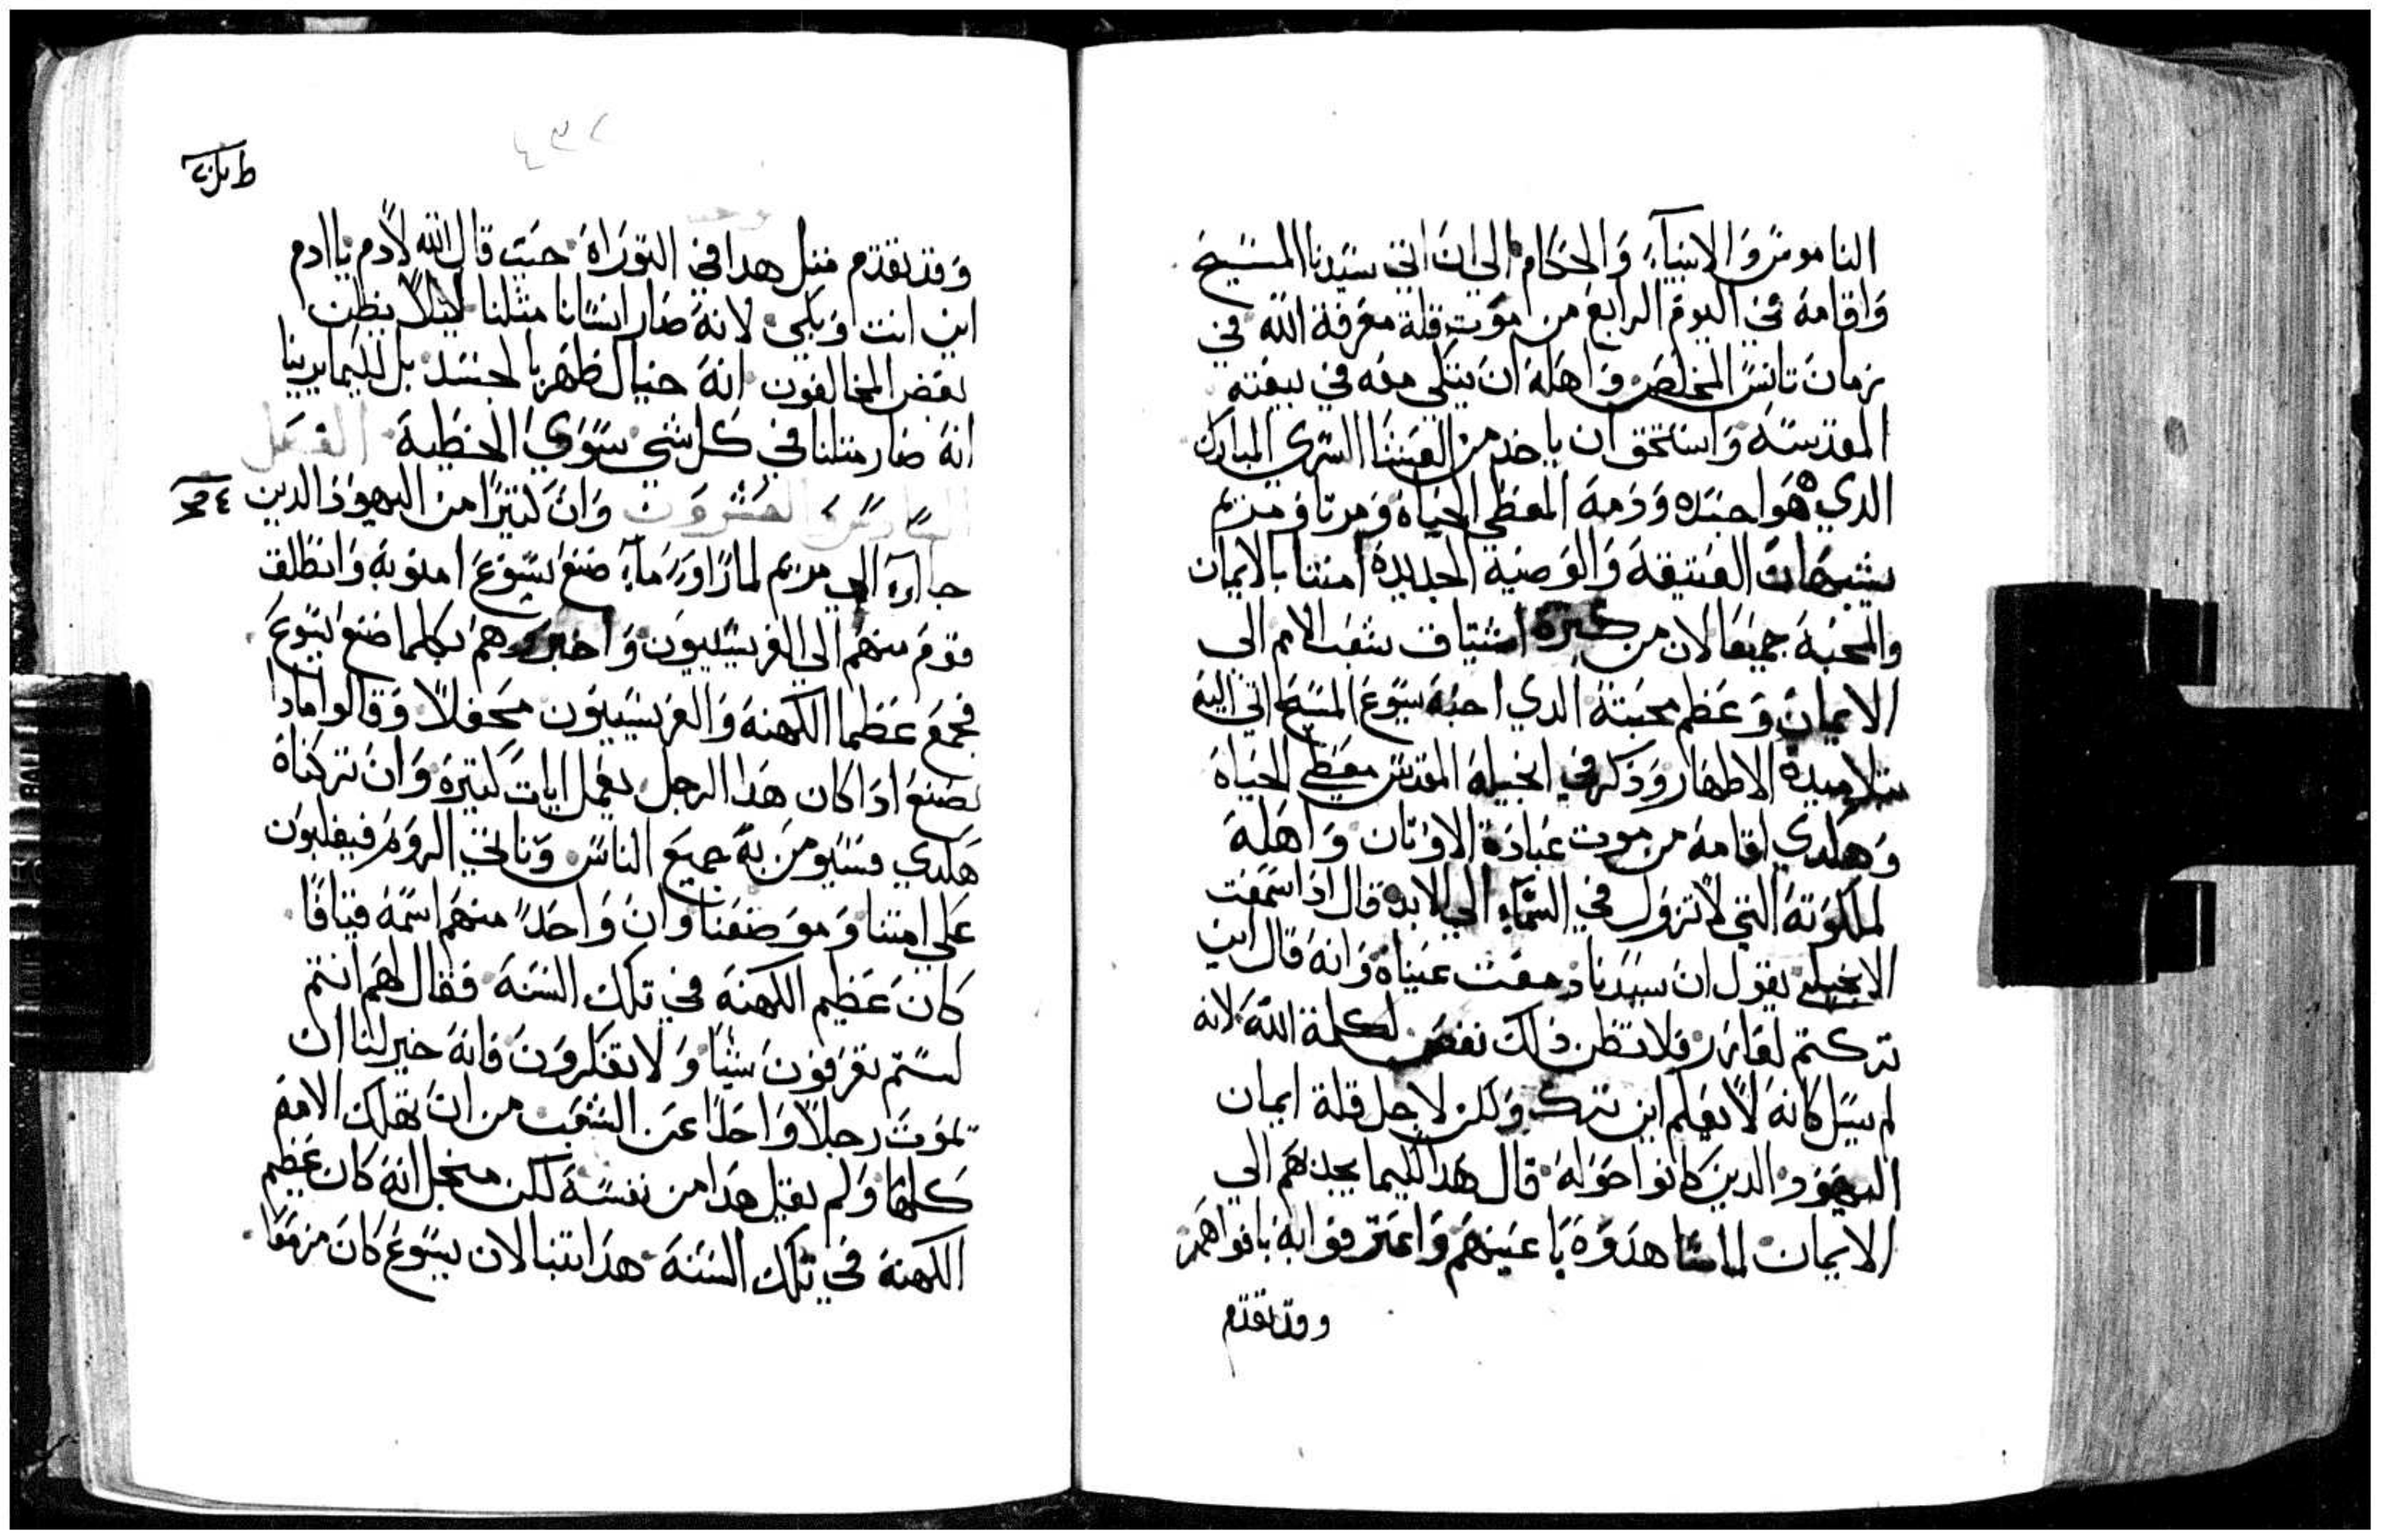 الناموس والانبياء والحكام الي ان اتي سيدنا المسيح
واقامه في اليوم الرابع من موت قلة معرفة الله في
زمان تانس المخلص واهله ان يتكي معه في بيعته
المقدسه واستحق ان ياخد من القسنا السري المبارك
الدي هوا جسده ودمه المعطي الحياه ومرتا ومريم
يشبهان العتيقة والوصية الجديدة امنتا بالايمان
والمحبة جميعا لان من كترة اشتياق شعب الامم الي
الايمان وعظم محبتة الدي احبه يسوع المسيح اتي اليه
بتلاميدة الاطهار وذكر في انجيله المقدس معطي الحياة
وهكدي اقامه من موت عبادة الاوتان واهله
لملكوته التي لا تزول في السماء الي الابد قال اذا سمعت
الانجيلي يقول ان سيدنا دمعت عيناة وانه قال اين
تركتم لعازر فلا تظن ذلك نقص لكلمة الله لانه
لم يسل كانه لا يعلم اين ترك ولكن لاجل قلة ايمان
اليهود الدين كانوا حوله قال هدا لكيما يجدبهم الي
الايمان لما شاهدوه باعينهم واعترفوا به بافواههم
وقد تقدم
ط
وقد تقدم متل هدا في التوراة حيت قال الله لادم يا ادم
اين انت وبكي لانه صار انسانا متلنا ليلا يظن
بعض المخالفون انه خيال ظهر بالجسد بل لكيما يرينا
انه صار متلنا في كل شي سوي الخطية الفصل
السادس والعشرون وان كتيرا من اليهود الدين
جاا اه الي مريم لما راو ما صنع يسوع امنو به وانطلق
قوم منهم الي الفريسيون واخبروهم بكلما صنع يسوع
فجمع عظما الكهنه والفريسيون محفلا وقالوا مادا
نصنع ادا كان هدا الرجل يعمل ايات كتيرة وان تركناة
هكدي فسيومن به جميع الناس وتاتي الروم فيغلبون
علي امتنا وموضعنا وان واحدا منهم اسمه قيافا
كان عظيم الكهنة في تلك السنه فقال لهم انتم
لستم تعرفون شيا ولا تفكرون فانه خير لنا ان
يموت رجلا واحدا عن الشعب من ان تهلك الامه
كلها ولم يقل هدا من نفسه لكن من اجل انه كان عظيم
الكهنة في تلك السنة هدا اتنبا لان يسوع كان مزمعا